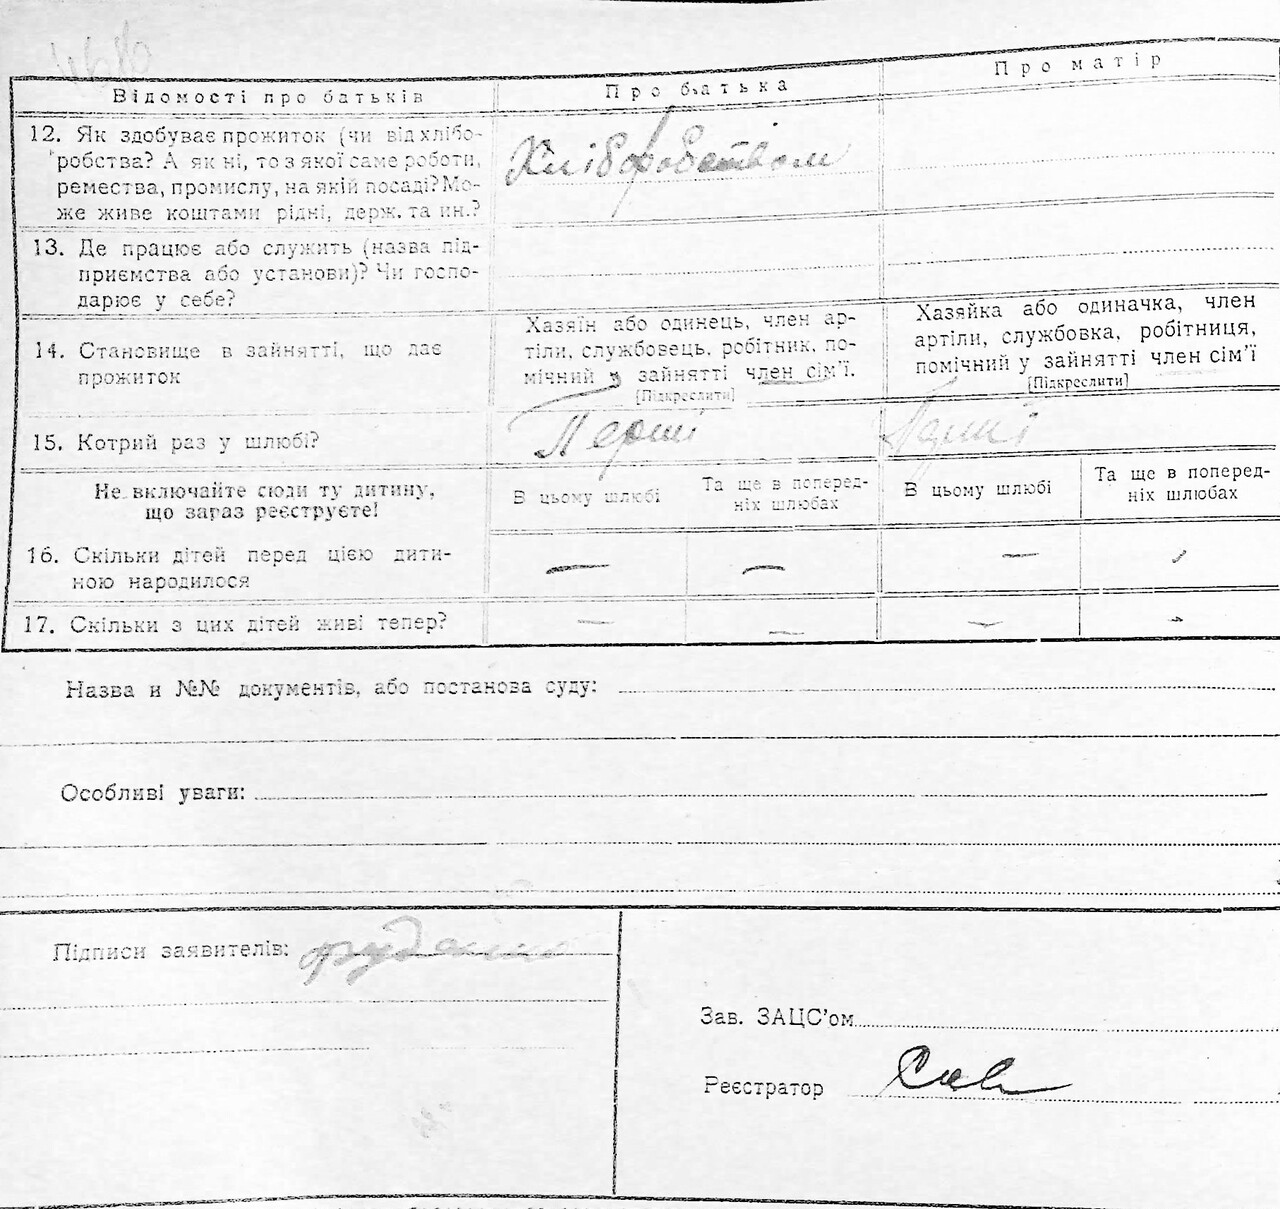 Відомості про батьків
Про батька
Про матір
12. Як здобуває прожиток (чи від хлібо-
робства? А як ні, то з якої саме роботи,
ремества, промислу, на якій посаді? Мо-
же живе коштами рідні, держ. та ин.?
Хліборобством
13. Де працює або служить (назва під-
приємства або установи)? Чи госпо-
дарює у себе?
14. Становище в зайнятті, що дає
прожиток
Хазяїн або одинець, член ар-
тіли, службовець, робітник, по-
мічний у зайнятті член сім'ї.
[Підкреслити]
Хазяйка або одиначка, член
артіли, службовка, робітниця,
помічний у зайнятті член сім'ї
[Підкреслити]
15. Котрий раз у шлюбі?
Перший
Не включайте сюди ту дитину,
що зараз реєструєте!
В цьому шлюбі
Та ще в поперед-
ніх шлюбах
В цьому шлюбі
Та ще в поперед-
ніх шлюбах
16. Скільки дітей перед цією дити-
ною народилося
— — — -
17. Скільки з цих дітей живі тепер?
— — — -
Назва и №№ документів, або постанова суду:
Особливі уваги:
Підписи заявителів:
Зав. ЗАЦС'ом
Реєстратор